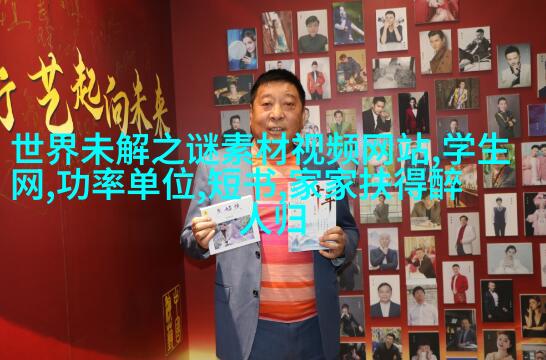 艺起向未来
世界未解之谜素材视频网站,学生
网,功率单位,短书,家家扶得醉
人归